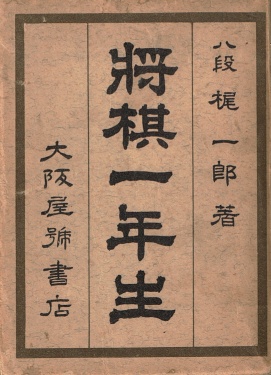 八段 梶一郎著
將棋一年生
大阪屋號書店